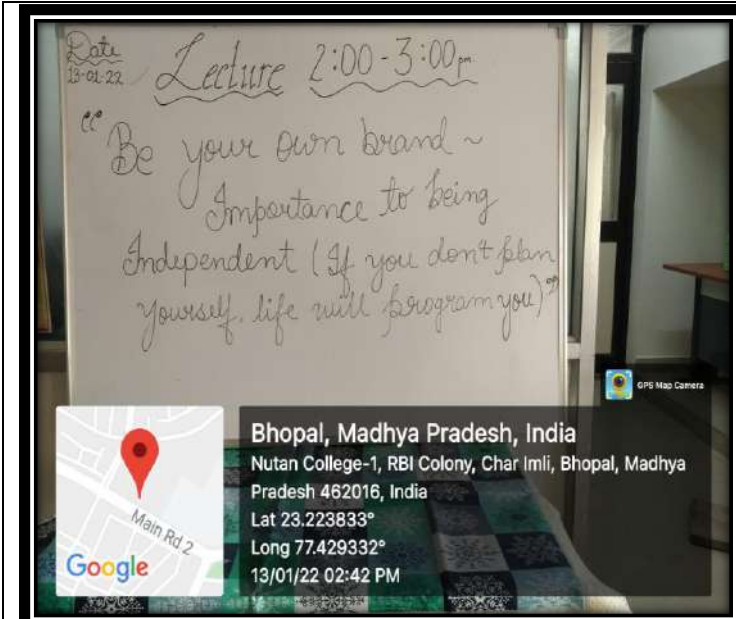 Date
13-01-22
Lecture 2:00-3:00 pm
“Be your own brand ~
Importance to being
Independent (If you don't plan
yourself. life will program you)”
GPS Map Camera
Bhopal, Madhya Pradesh, India
Nutan College-1, RBI Colony, Char Imli, Bhopal, Madhya
Pradesh 462016, India
Lat 23.223833°
Long 77.429332°
13/01/22 02:42 PM
Main Rd 2
Google